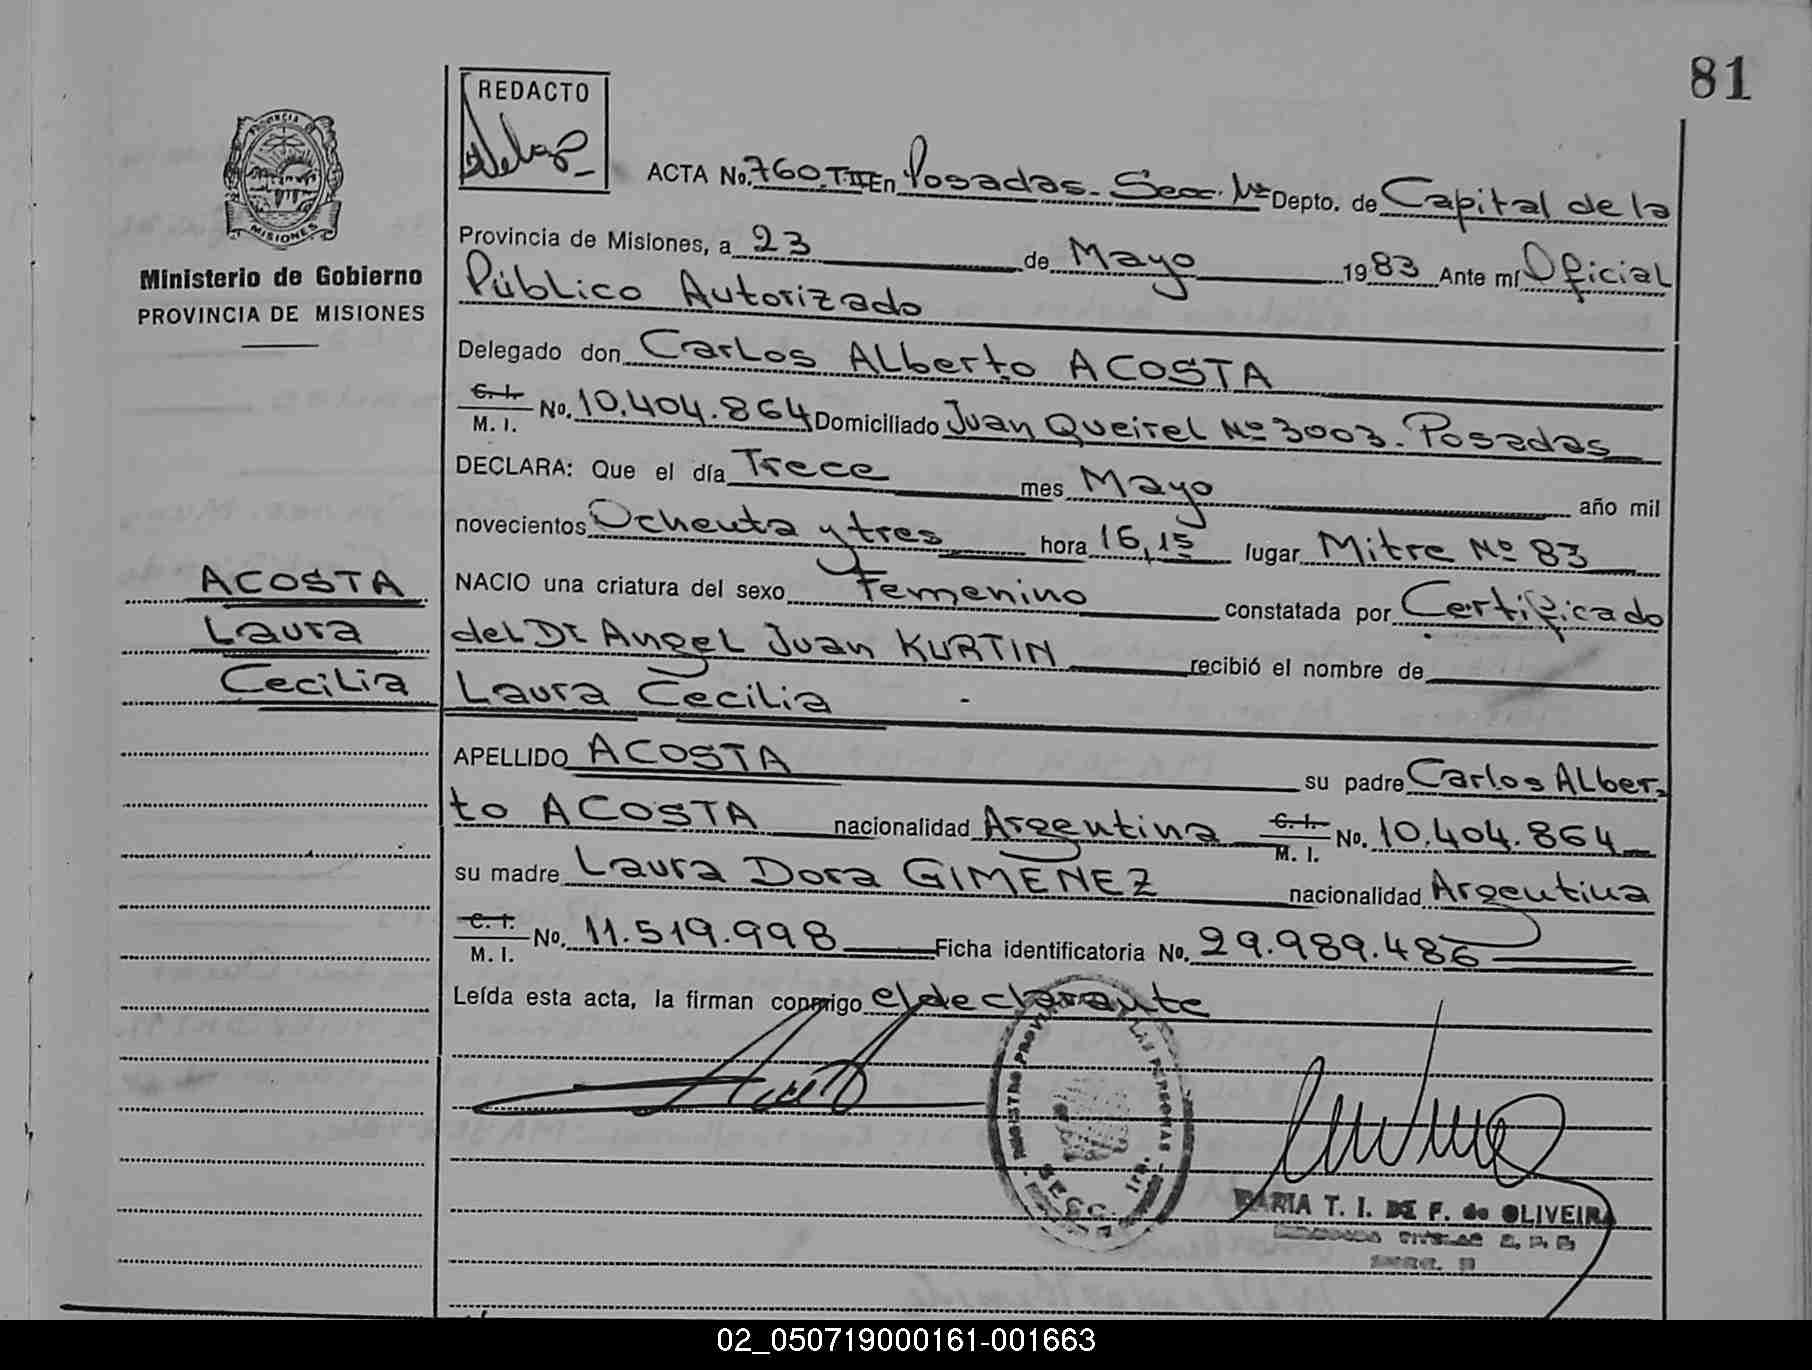 81
REDACTO
PROVINCIA
MISIONES
Ministerio de Gobierno
PROVINCIA DE MISIONES
ACTA No. 760.T.II En Posadas - Secc. 1ra Depto. de Capital de la
Provincia de Misiones, a 23 de Mayo 1983 Ante mí Oficial
Público Autorizado
Delegado don Carlos Alberto ACOSTA
C. I.
M. I. No. 10.404.864 Domiciliado Juan Queirel Nº 3003. Posadas
DECLARA: Que el día Trece mes Mayo año mil
novecientos Ochenta y tres hora 16,15 lugar Mitre Nº 83
NACIO una criatura del sexo Femenino constatada por Certificado
del Dr Angel Juan KURTIN recibió el nombre de
Laura Cecilia
ACOSTA
Laura
Cecilia
APELLIDO ACOSTA su padre Carlos Alber-
to ACOSTA nacionalidad Argentina C. I. M. I. No. 10.404.864
su madre Laura Dora GIMENEZ nacionalidad Argentina
C. I.
M. I. No. 11.519.998 Ficha identificatoria No. 29.989.486
Leída esta acta, la firman conmigo el declarante
REGISTRO LAS PERSONAS
SECC. 1ra.
MARIA T. I. DE F. de OLIVEIRA
02_050719000161-001663